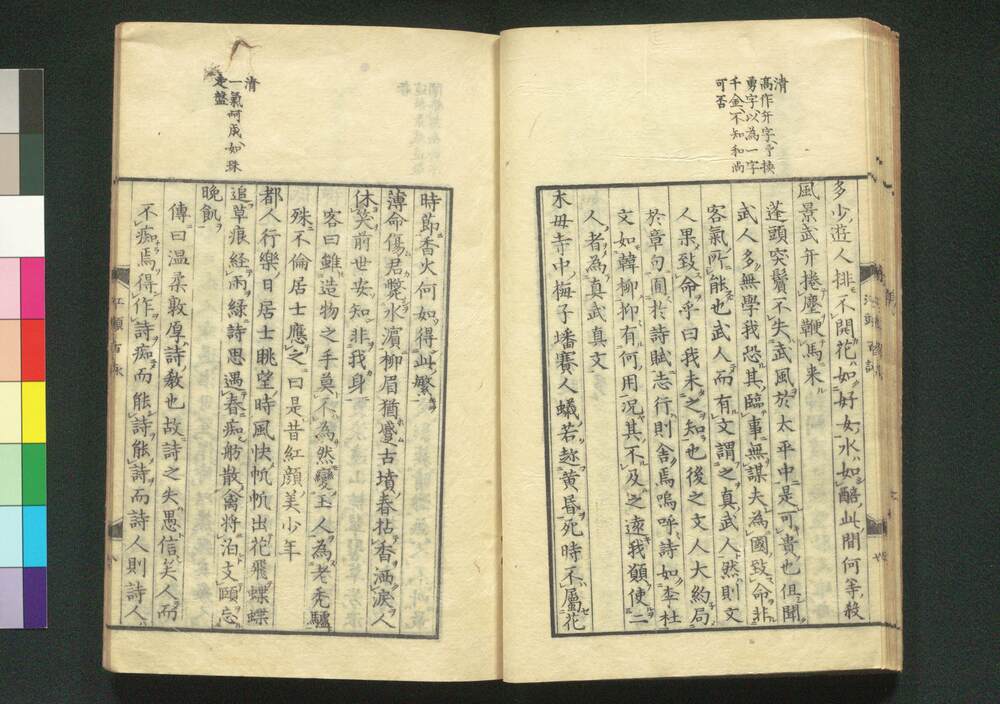 清
高作弁字予換
勇字以為一字
千金不知和尚
可否
多少遊人排不開花如好女水如醅此間何等殺
風景武弁捲塵鞭馬来
蓬頭突鬢不失武風於太平中是可貴也但聞
武人多無學我恐其臨事無謀夫為國致命非
客氣所能也武人而有文謂之真武人然則文
人果致命乎曰我未之知也後之文人大約局
於章句圃於詩賦志行則舍焉嗚呼詩如李杜
文如韓柳抑有何用況其不及之遠我願使二
人者為真武真文
木母寺中梅子墦賽人蟻若趂黄昏死時不屬花
清
一氣呵成如珠
走盤
時節香火何如得此繁
薄命傷君斃水濵柳眉猶蹙古墳春拈香洒涙人
休笑前世安知非我身
客曰雖造物之手莫不為然變玉人為老禿驢
殊不倫居士應之曰是昔紅顔美少年
都人行樂日居士眺望時風快帆帆出花飛蝶蝶
追草痕経雨緑詩思遇春痴舫散禽将泊文頤忘
晩飢
傳曰温柔敦厚詩教也故詩之失愚信矣人而
不痴焉得作詩痴而能詩能詩而詩人則詩人